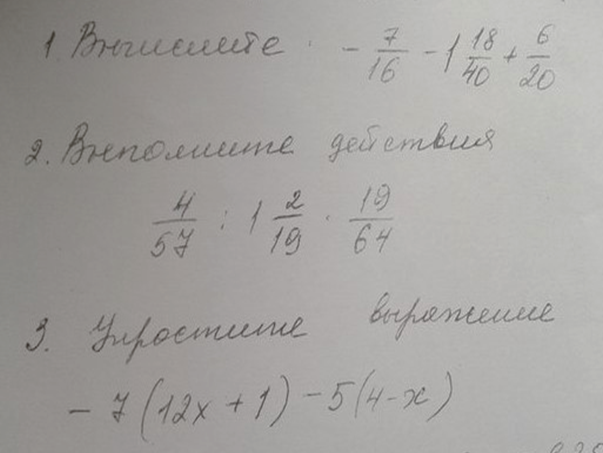 1. Вычислите: -7/16 - 1 18/40 + 6/20
2. Выполните действия
4/57 : 1 2/19 · 19/64
3. Упростите выражение
-7(12x + 1) - 5(4 - x)